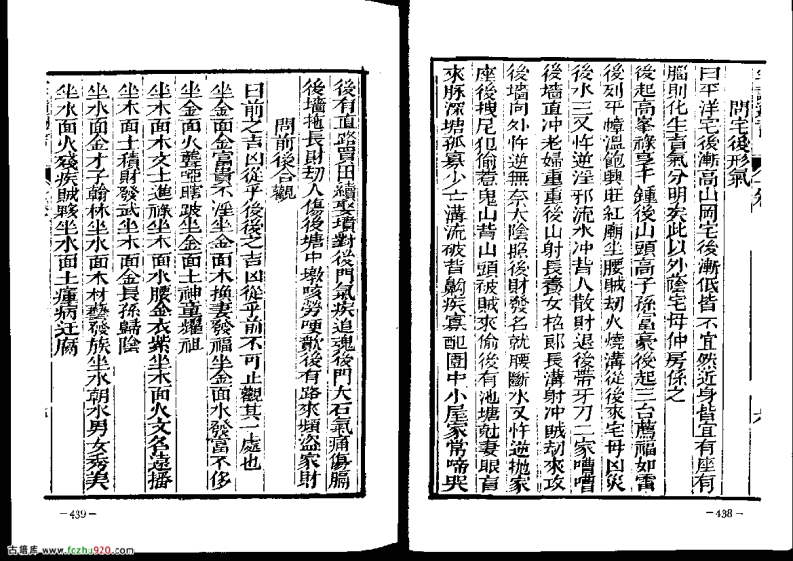 問宅後形氣
曰平洋宅後漸高山岡宅後漸低皆不宜然近身皆宜有座有
腦則化生吉氣分明矣此以外陰宅毋仲房係之
後起高峯祿享千鍾後山頭高子孫富豪後起三台薦福如雷
後列平幛溫飽興旺紅廟坐腰賊劫火燒溝從後來宅母凶災
後水三叉忤逆淫邪流水冲背人散財退後帶牙刀二家嘈嘈
後墻直冲老婦重重後山射長養女招郎長溝射冲賊劫來攻
後墻向外忤逆無奈太陰照後財發名就腰斷水叉忤逆拋家
座後拽尼犯偷惹鬼山背山頭被賊來偷後有池塘尅妻眼盲
來脉深塘孤寡少亡溝流破背鰥疾寡配園中小屋家常啼哭
—438—
後有直路買田續娶墳對後門氣疾追魂後門大石氣痛傷膈
後墻拖長財劫人傷後塘中墩咳勞哽歎後有路來頻盜家財
問前後合觀
曰前之吉凶從乎後後之吉凶從乎前不可止觀其一處也
坐金面金富貴不淫坐金面木換妻發福坐金面水發富不侈
坐金面火聾啞瞎跛坐金面土神童耀祖
坐木面木文士進祿坐木面水腰金衣紫坐木面火文名遠播
坐木面土積財發武坐木面金長孫歸陰
坐水面金才子翰林坐水面木材藝發族坐水朝水男女秀美
坐水面火殘疾賊夥坐水面土瘟病迂腐
—439—
古墙库 www.fczhu920.com